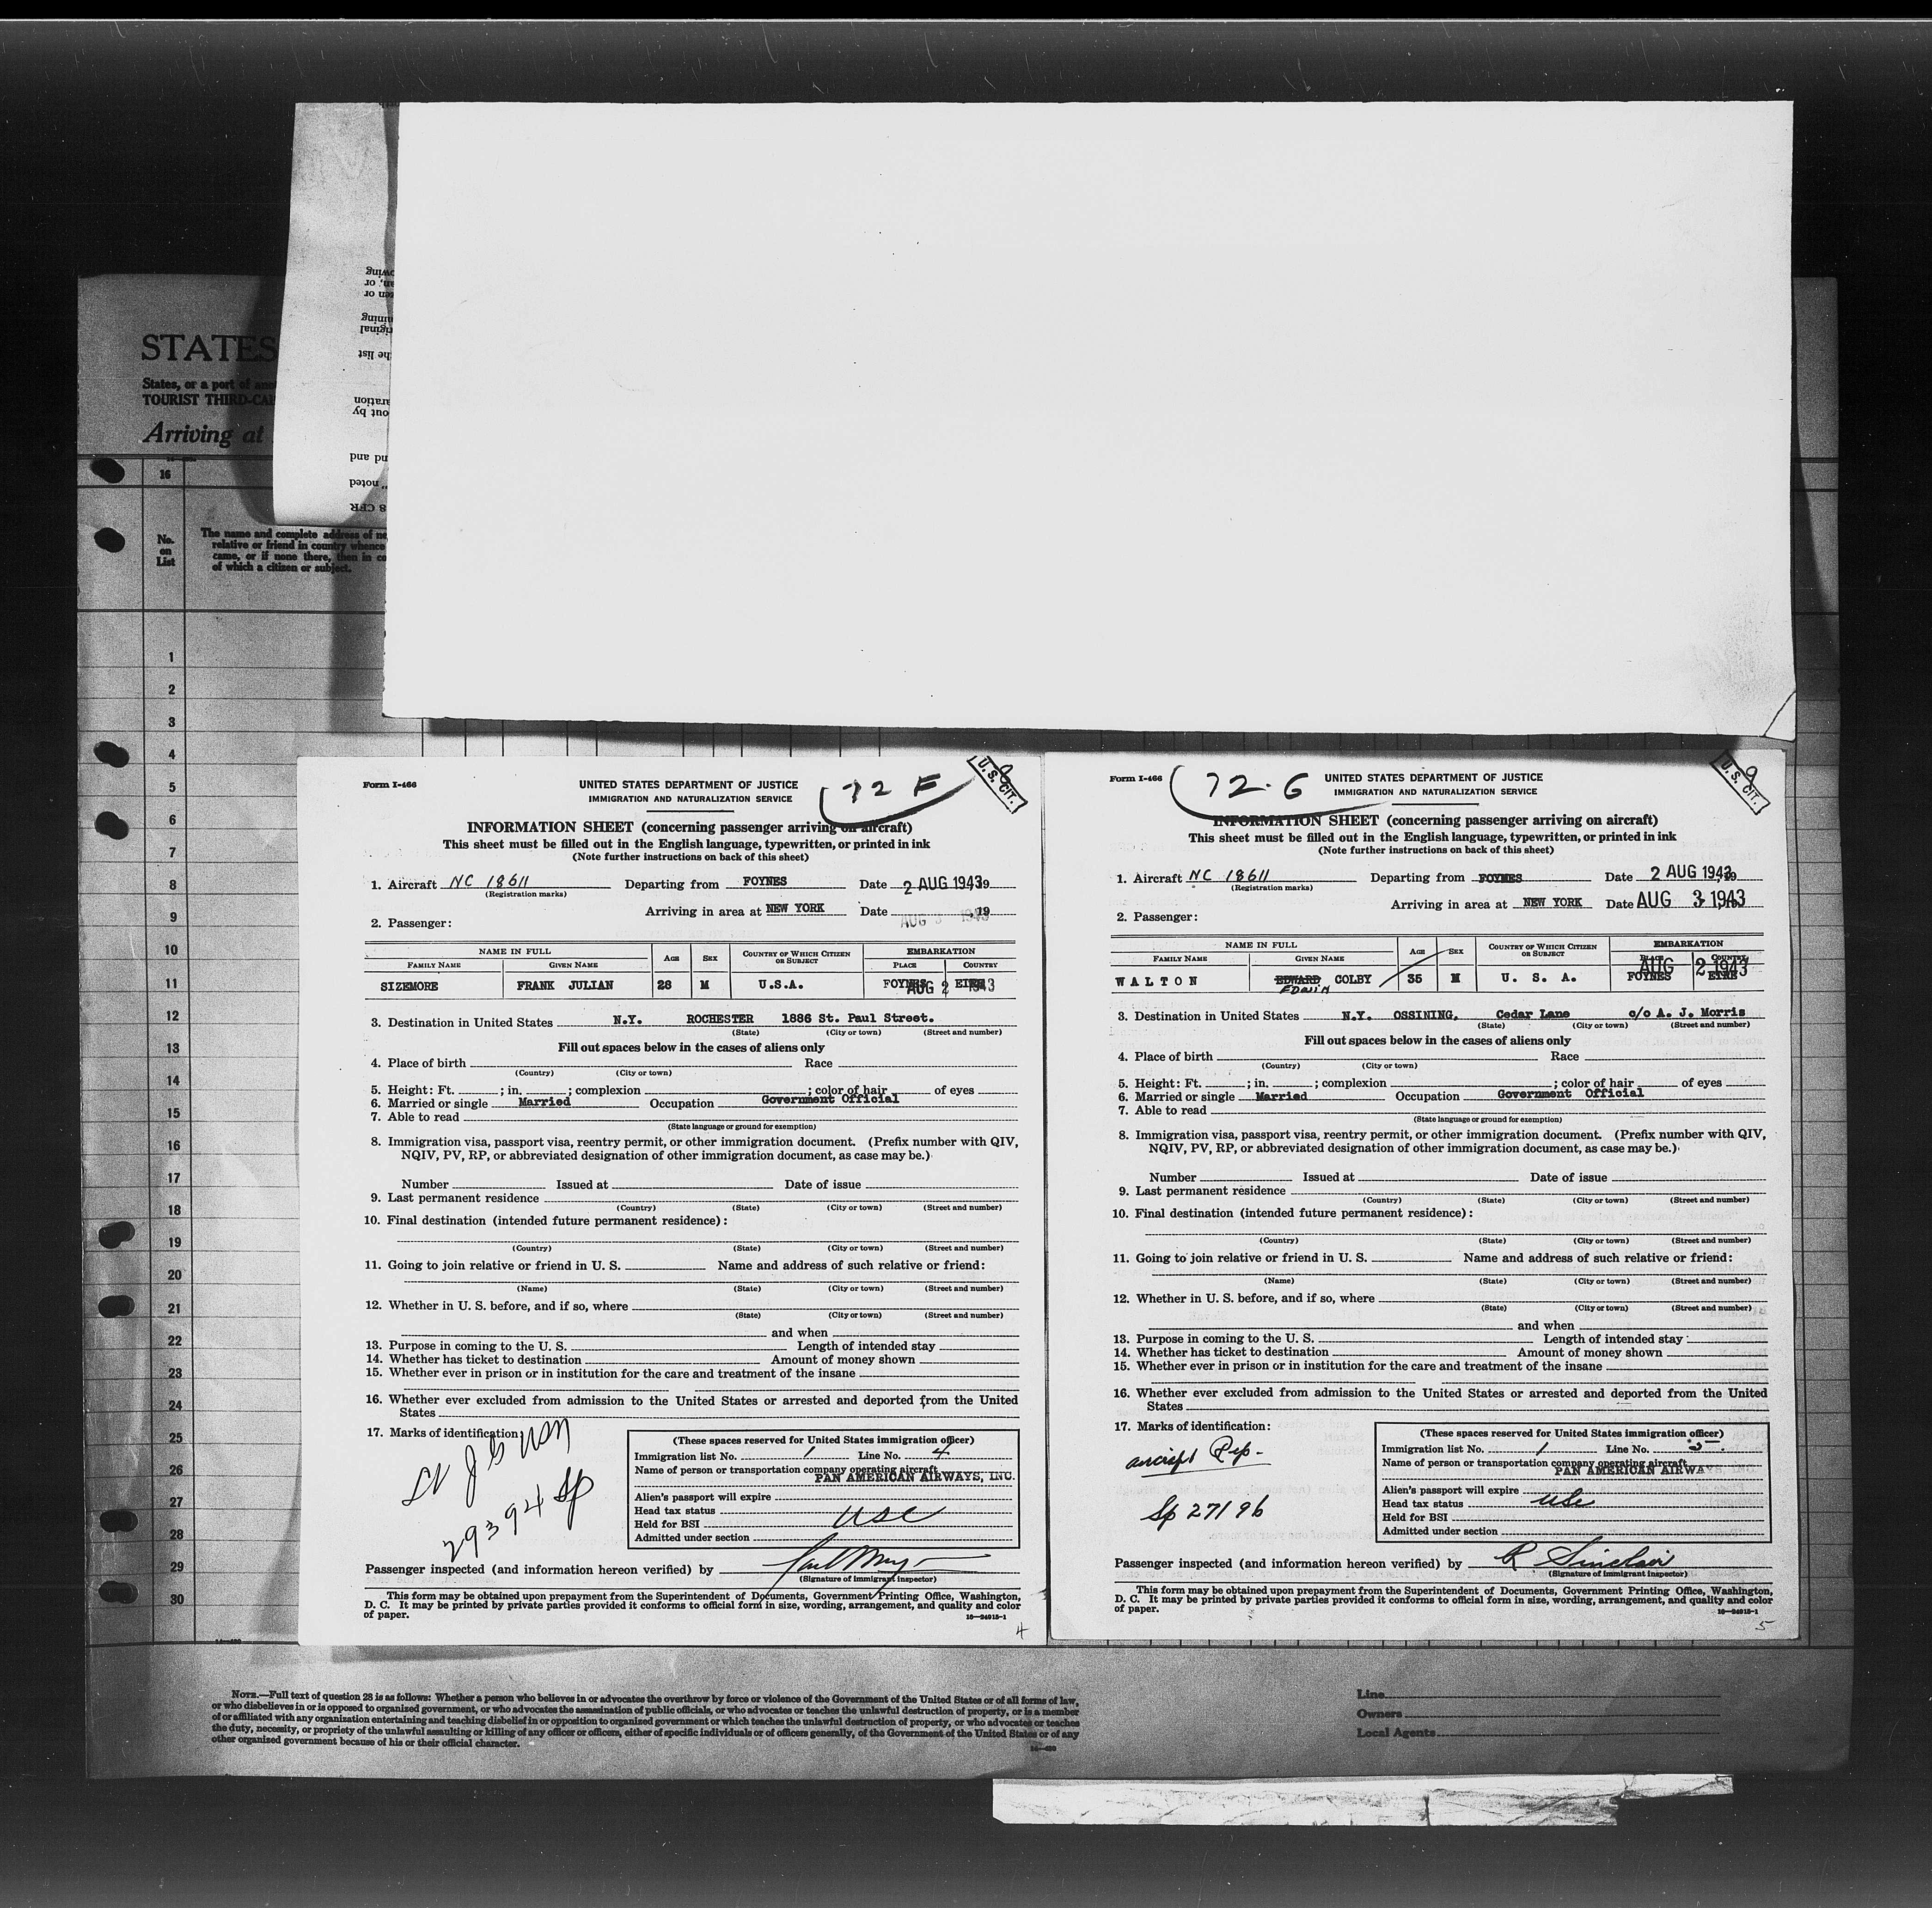 STATES
States, or a port of
TOURIST THIRD-CA
Arriving at
16
No.
on
List
The name and complete address of
relative or friend in country whence
came, or if none there, then in
of which a citizen or subject.
1
2
3
4
5
6
7
8
9
10
11
12
13
14
15
16
17
18
19
20
21
22
23
24
25
26
27
28
29
30
8 CFR
noted
nd and
out by
aration
he list
riginal
aining
en or
an, or
owing
Form I-466
72 F
U.S. CIT.
8
UNITED STATES DEPARTMENT OF JUSTICE
IMMIGRATION AND NATURALIZATION SERVICE
INFORMATION SHEET (concerning passenger arriving on aircraft)
This sheet must be filled out in the English language, typewritten, or printed in ink
(Note further instructions on back of this sheet)
1. Aircraft NC 18611 Departing from FOYNES Date 2 AUG 1943, 19
(Registration marks)
Arriving in area at NEW YORK Date AUG 3 1943, 19
2. Passenger:
NAME IN FULL AGE SEX COUNTRY OF WHICH CITIZEN OR SUBJECT EMBARKATION
FAMILY NAME GIVEN NAME PLACE COUNTRY
SIZEMORE FRANK JULIAN 28 M U.S.A. FOYNES EIRE
AUG 2 1943
3. Destination in United States N.Y. ROCHESTER 1886 St. Paul Street.
(State) (City or town) (Street and number)
Fill out spaces below in the cases of aliens only
4. Place of birth Race
(Country) (City or town)
5. Height: Ft. ; in. ; complexion ; color of hair of eyes
6. Married or single Married Occupation Government Official
7. Able to read
(State language or ground for exemption)
8. Immigration visa, passport visa, reentry permit, or other immigration document. (Prefix number with QIV,
NQIV, PV, RP, or abbreviated designation of other immigration document, as case may be.)
Number Issued at Date of issue
9. Last permanent residence
(Country) (State) (City or town) (Street and number)
10. Final destination (intended future permanent residence):
(Country) (State) (City or town) (Street and number)
11. Going to join relative or friend in U. S. Name and address of such relative or friend:
(Name) (State) (City or town) (Street and number)
12. Whether in U. S. before, and if so, where
(State) (City or town) (Street and number)
and when
13. Purpose in coming to the U. S. Length of intended stay
14. Whether has ticket to destination Amount of money shown
15. Whether ever in prison or in institution for the care and treatment of the insane
16. Whether ever excluded from admission to the United States or arrested and deported from the United
States
17. Marks of identification:
29394 Sp
(These spaces reserved for United States immigration officer)
Immigration list No. 1 Line No. 4
Name of person or transportation company operating aircraft
PAN AMERICAN AIRWAYS, INC.
Alien's passport will expire
Head tax status USC
Held for BSI
Admitted under section
Passenger inspected (and information hereon verified) by
(Signature of immigrant inspector)
This form may be obtained upon prepayment from the Superintendent of Documents, Government Printing Office, Washington,
D. C. It may be printed by private parties provided it conforms to official form in size, wording, arrangement, and quality and color
of paper.
16—24915-1
4
Form I-466
72-G
U.S. CIT.
9
UNITED STATES DEPARTMENT OF JUSTICE
IMMIGRATION AND NATURALIZATION SERVICE
INFORMATION SHEET (concerning passenger arriving on aircraft)
This sheet must be filled out in the English language, typewritten, or printed in ink
(Note further instructions on back of this sheet)
1. Aircraft NC 18611 Departing from FOYNES Date 2 AUG 1943, 19
(Registration marks)
Arriving in area at NEW YORK Date AUG 3 1943
2. Passenger:
NAME IN FULL AGE SEX COUNTRY OF WHICH CITIZEN OR SUBJECT EMBARKATION
FAMILY NAME GIVEN NAME PLACE COUNTRY
AUG 2 1943
WALTON EDWARD COLBY 35 M U. S. A. FOYNES EIRE
EDWIN
3. Destination in United States N.Y. OSSINING, Cedar Lane c/o A. J. Morris
(State) (City or town) (Street and number)
Fill out spaces below in the cases of aliens only
4. Place of birth Race
(Country) (City or town)
5. Height: Ft. ; in. ; complexion ; color of hair of eyes
6. Married or single Married Occupation Government Official
7. Able to read
(State language or ground for exemption)
8. Immigration visa, passport visa, reentry permit, or other immigration document. (Prefix number with QIV,
NQIV, PV, RP, or abbreviated designation of other immigration document, as case may be.)
Number Issued at Date of issue
9. Last permanent residence
(Country) (State) (City or town) (Street and number)
10. Final destination (intended future permanent residence):
(Country) (State) (City or town) (Street and number)
11. Going to join relative or friend in U. S. Name and address of such relative or friend:
(Name) (State) (City or town) (Street and number)
12. Whether in U. S. before, and if so, where
(State) (City or town) (Street and number)
and when
13. Purpose in coming to the U. S. Length of intended stay
14. Whether has ticket to destination Amount of money shown
15. Whether ever in prison or in institution for the care and treatment of the insane
16. Whether ever excluded from admission to the United States or arrested and deported from the United
States
17. Marks of identification:
aircraft Rep.
Sp 27196
(These spaces reserved for United States immigration officer)
Immigration list No. 1 Line No. 5
Name of person or transportation company operating aircraft
PAN AMERICAN AIRWAYS, INC.
Alien's passport will expire
Head tax status USC
Held for BSI
Admitted under section
Passenger inspected (and information hereon verified) by R Sinclair
(Signature of immigrant inspector)
This form may be obtained upon prepayment from the Superintendent of Documents, Government Printing Office, Washington,
D. C. It may be printed by private parties provided it conforms to official form in size, wording, arrangement, and quality and color
of paper.
16—24915-1
5
NOTE.—Full text of question 28 is as follows: Whether a person who believes in or advocates the overthrow by force or violence of the Government of the United States or of all forms of law,
or who disbelieves in or is opposed to organized government, or who advocates the assassination of public officials, or who advocates or teaches the unlawful destruction of property, or is a member
of or affiliated with any organization entertaining and teaching disbelief in or opposition to organized government or which teaches the unlawful destruction of property, or who advocates or teaches
the duty, necessity, or propriety of the unlawful assaulting or killing of any officer or officers, either of specific individuals or of officers generally, of the Government of the United States or of any
other organized government because of his or their official character.
Line
Owners
Local Agents